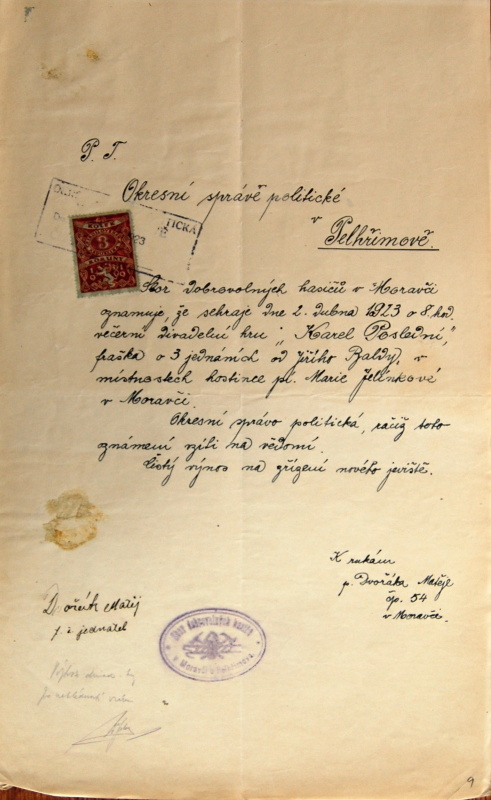 P. T.
Okresní správě politické
v
Pelhřimově.
TICKÁ
3
Sbor dobrovolných hasičů v Moravči
oznamuje, že sehraje dne 2. dubna 1923 o 8. hod.
večerní divadelní hru "Karel Poslední",
fraška o 3 jednáních od Jiřího Baldy, v
místnostech hostince pí. Marie Jelínkové
v Moravči.
Okresní správo politická, račiž toto
oznámení vzíti na vědomí.
Čistý výnos na zřízení nového jeviště.
K rukám
p. Dvořáka Matěje
čp. 54
v Moravči.
Dvořák Matěj
t. č. jednatel
Sbor dobrovolných hasičů
v Moravči
9